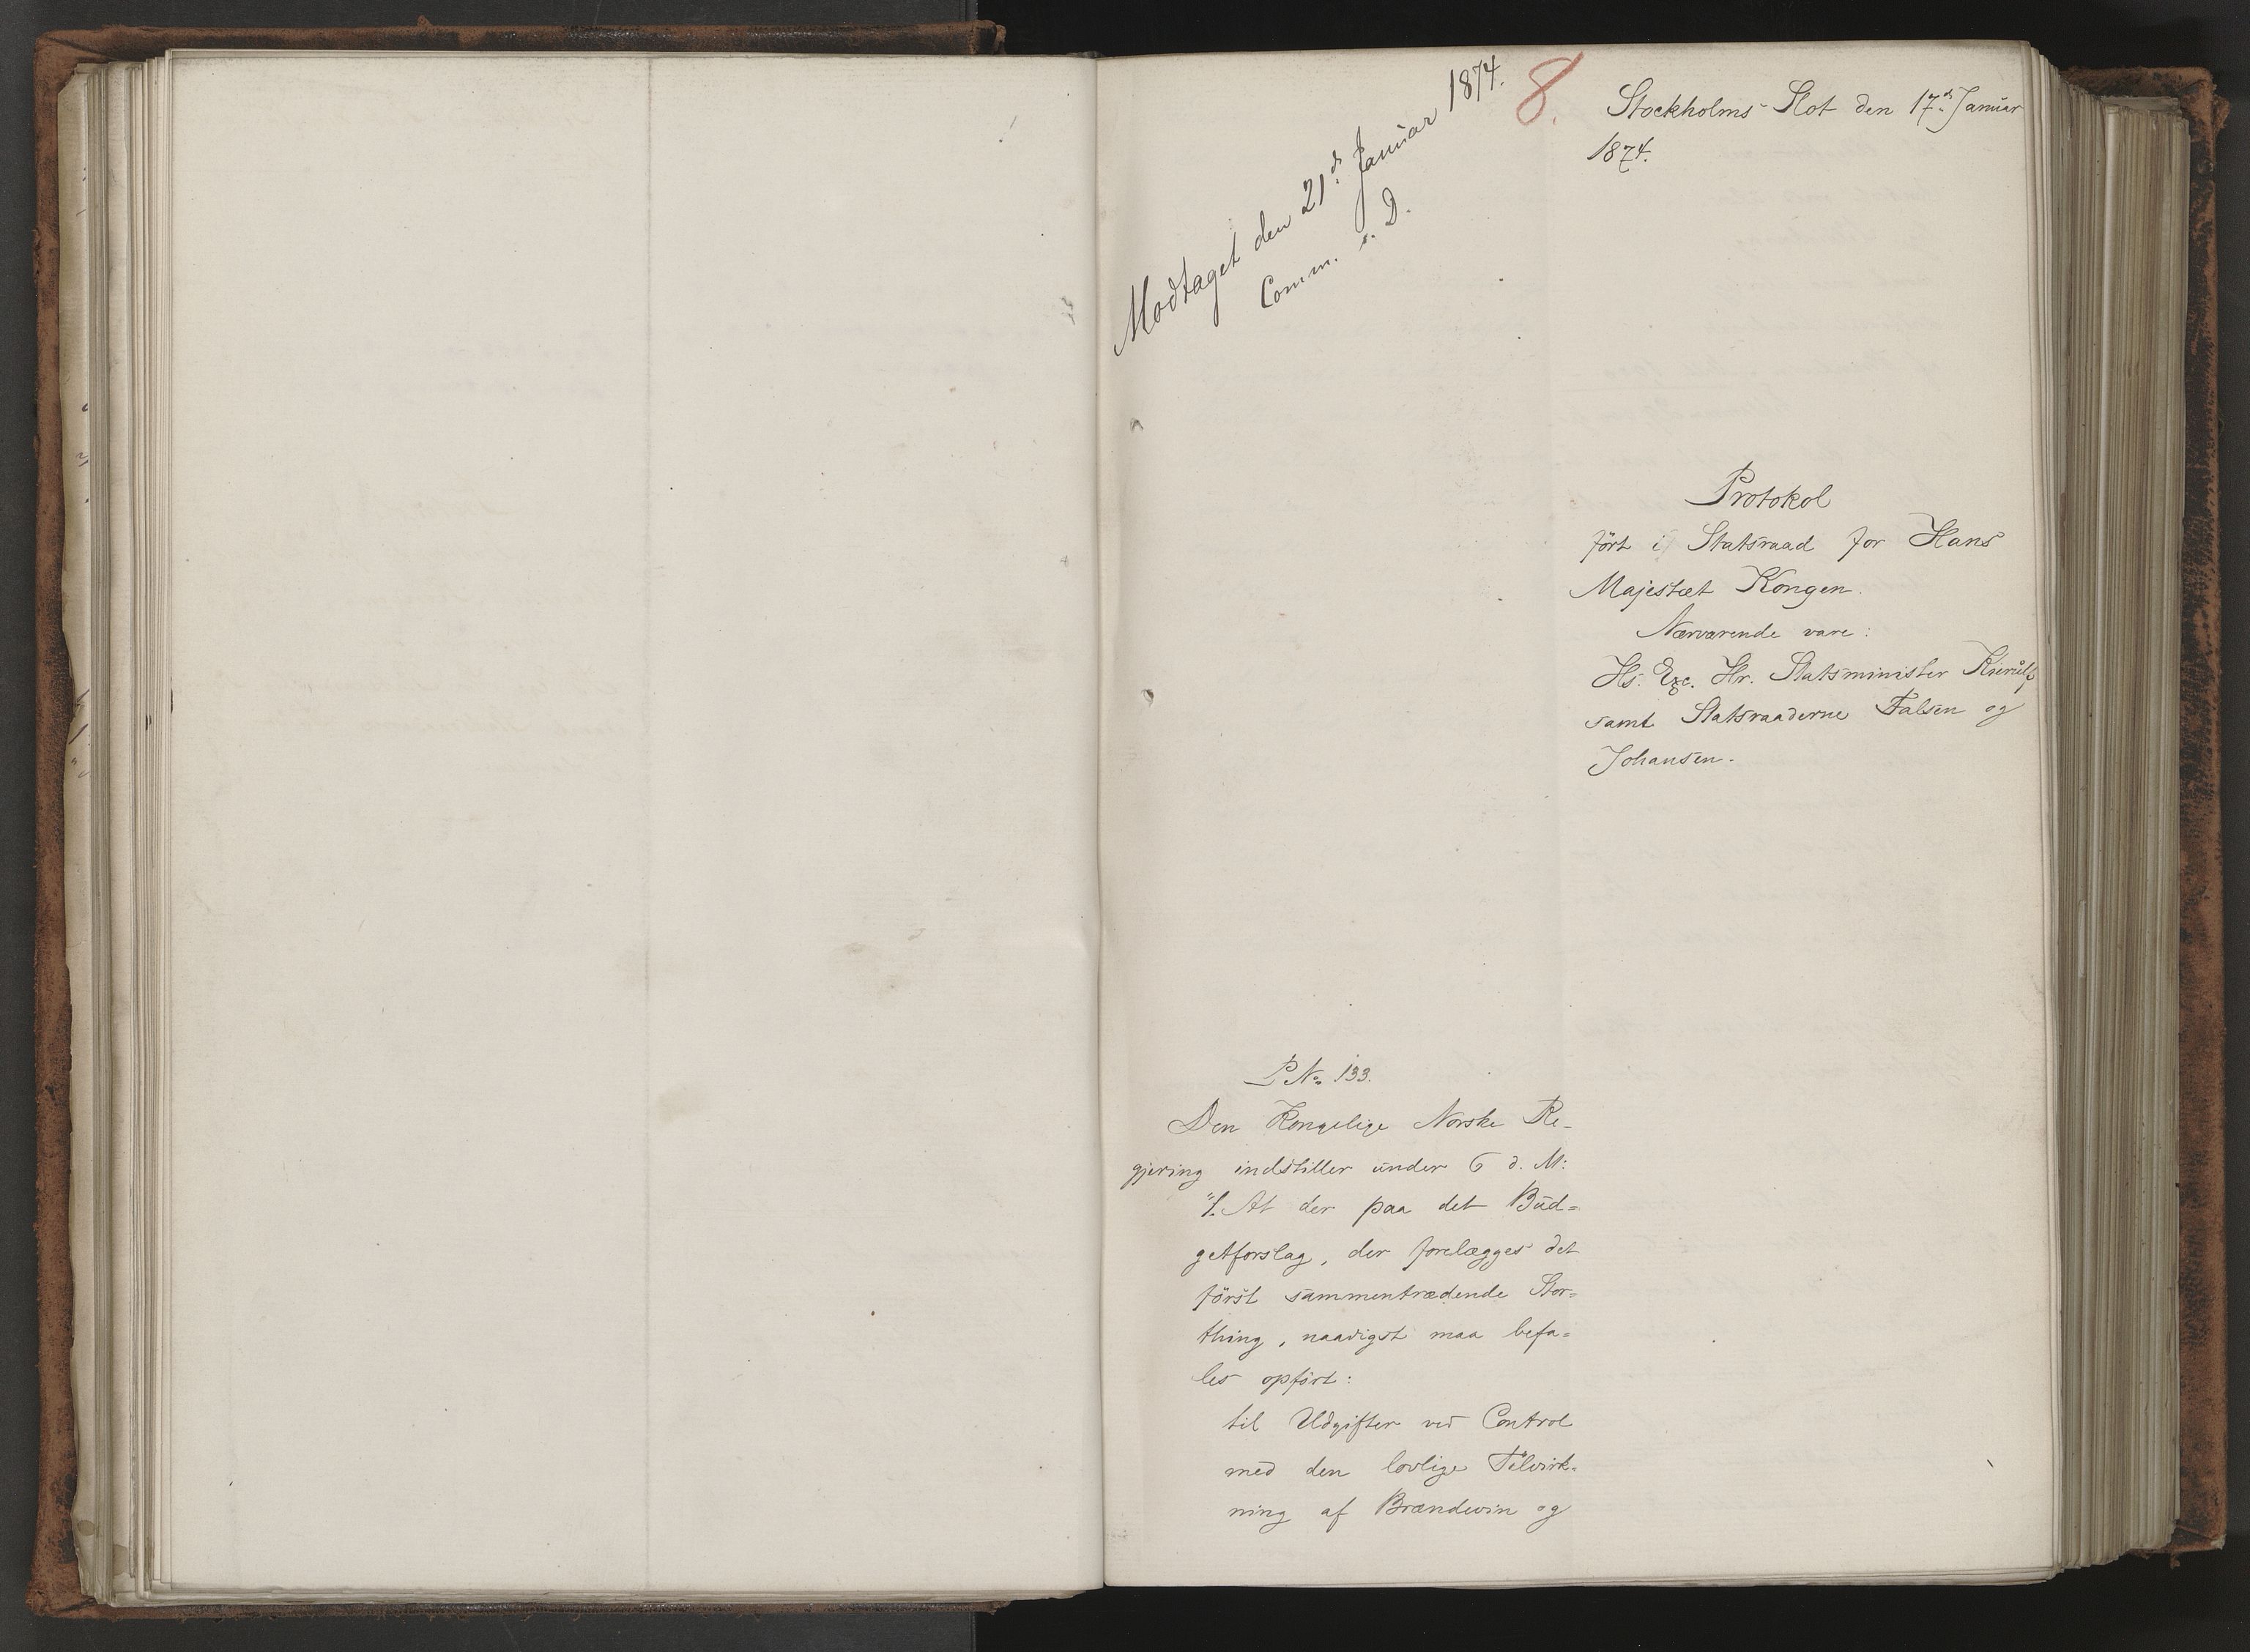 Modtaget den 21ds Januar 1874.
Comm. s. D.
8.
Stockholms Slot den 17ds Januar
1874.
Protokol
ført i Statsraad for Hans
Majestæt Kongen.
Nærværende vare:
Hs. Exc. Hr. Statsminister Kierulf
samt Statsraaderne Falsen og
Johansen.
P No 133.
Den Kongelige Norske Re-
gjering indstiller under 6 d. M:
"1. At der paa det Bud=
getforslag, der forelægges det
først sammentrædende Stor=
thing, naadigst maa befa=
les opført:
til Udgifter ved Control
med den lovlige Tilvirk-
ning af Brændeviin og